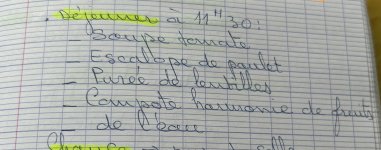 . Déjeuner à 11H30:
Soupe tomate
- Escalope de poulet
- Purée de lentilles
- Compote harmonie de fruits
- de l'eau